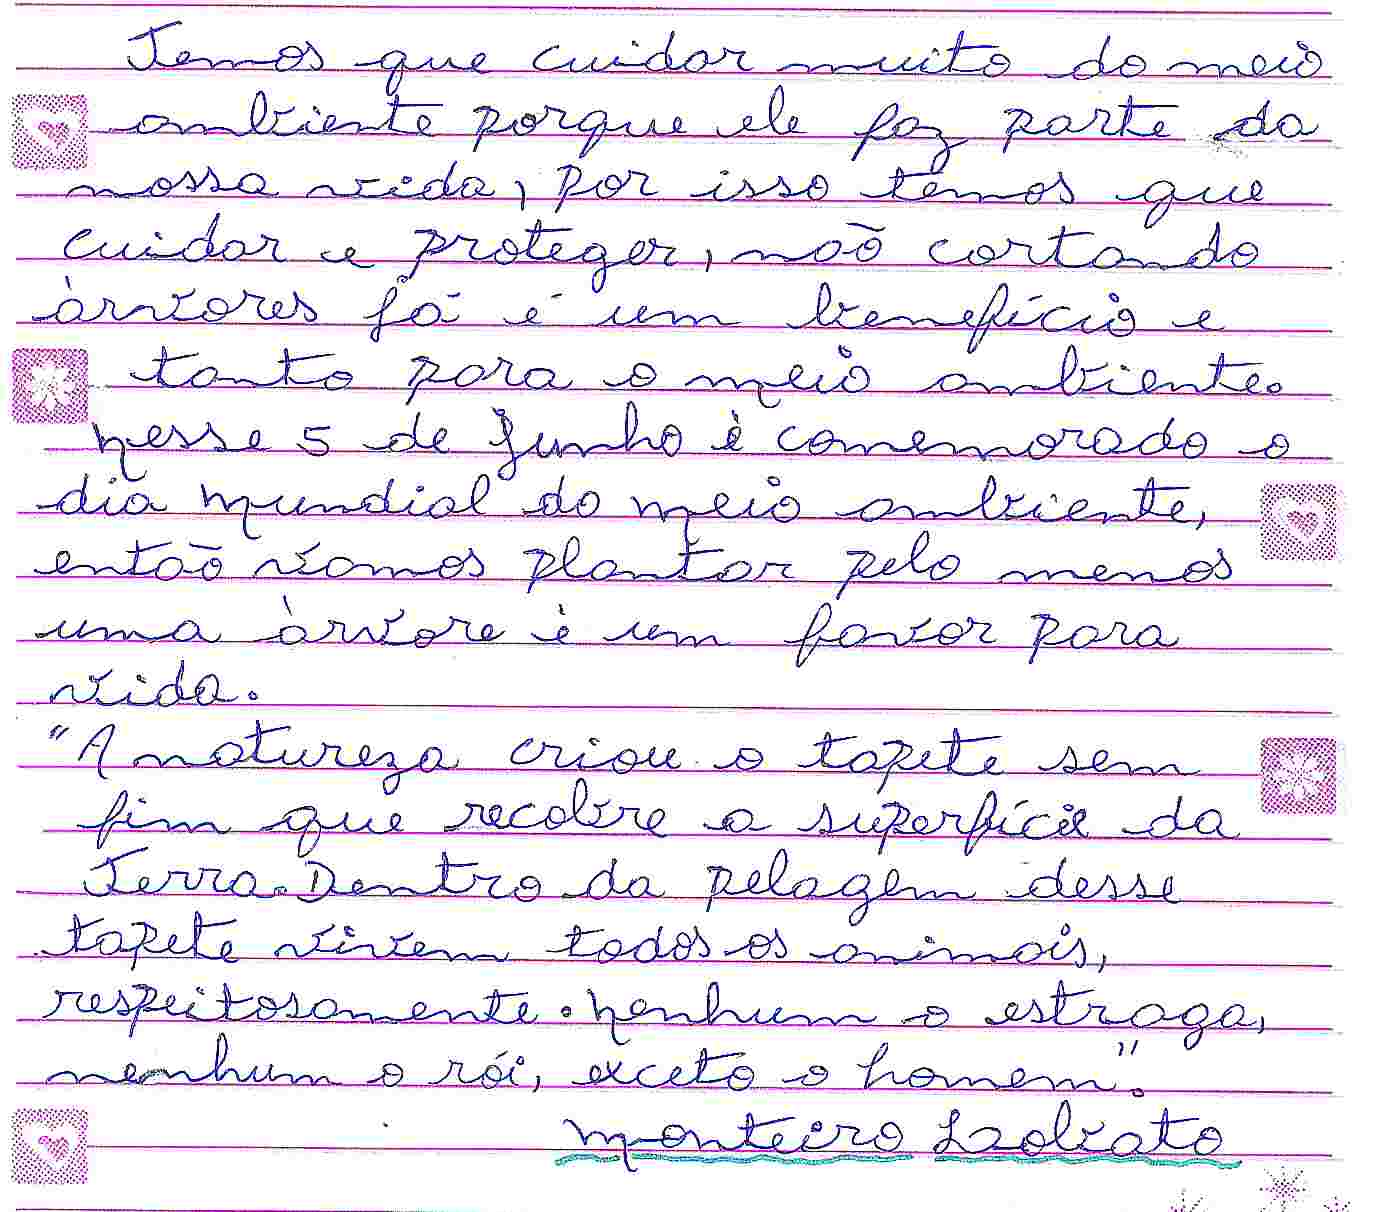 Temos que cuidar muito do meio
ambiente porque ele faz parte da
nossa vida, por isso temos que
cuidar e proteger, não cortando
àrvores já é um benefício e
tanto para o meio ambiente.
nesse 5 de Junho è comemorado o
dia mundial do meio ambiente,
então vamos plantar pelo menos
uma àrvore è um favor para
vida.
"A natureza criou o tapete sem
fim que recobre a superfície da
Terra. Dentro da pelagem desse
tapete vivem todos os animais,
respeitosamente. nenhum o estraga,
nenhum o rói, exceto o homem".
monteiro Lobato